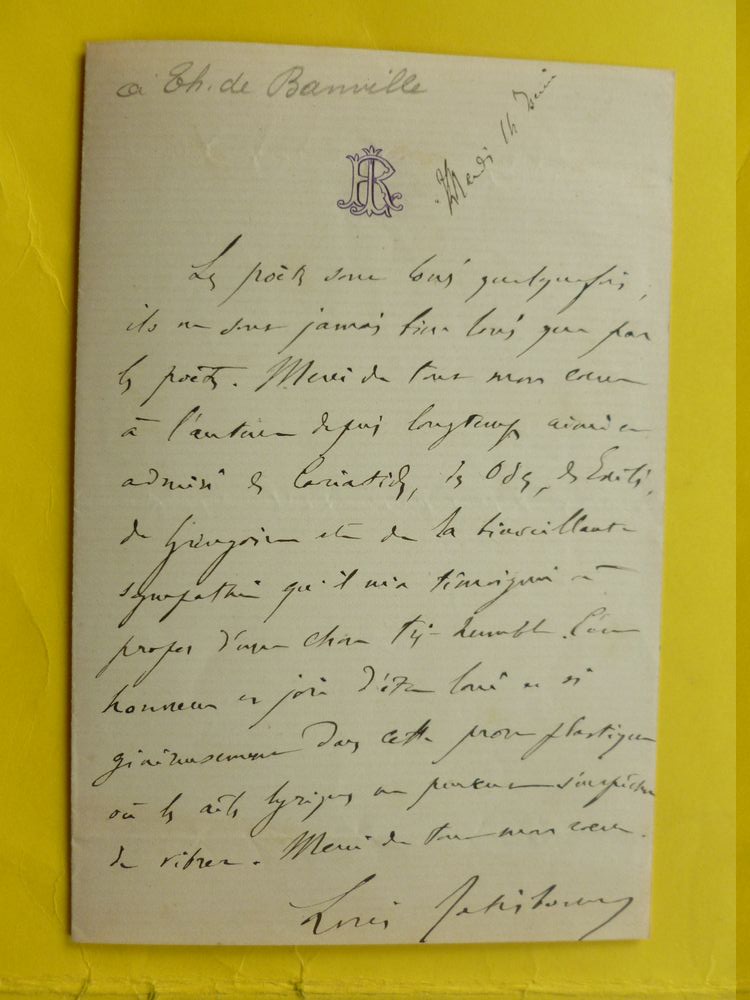 à Th. de Banville
Mardi 14 Juin
Les poètes sont loués quelquefois,
ils ne sont jamais bien loués que par
les poètes. Merci de tout mon cœur
à l'auteur depuis longtemps aimé et
admiré des Cariatides, des Odes, des Exilés,
de Gringoire et de la bienveillante
sympathie qu'il m'a témoignée à
propos d'une chose très-humble. C'est
honneur et joie d'être loué et si
généreusement dans cette prose plastique
où les ailes lyriques ne peuvent s'empêcher
de vibrer. Merci de tout mon cœur.
Louis